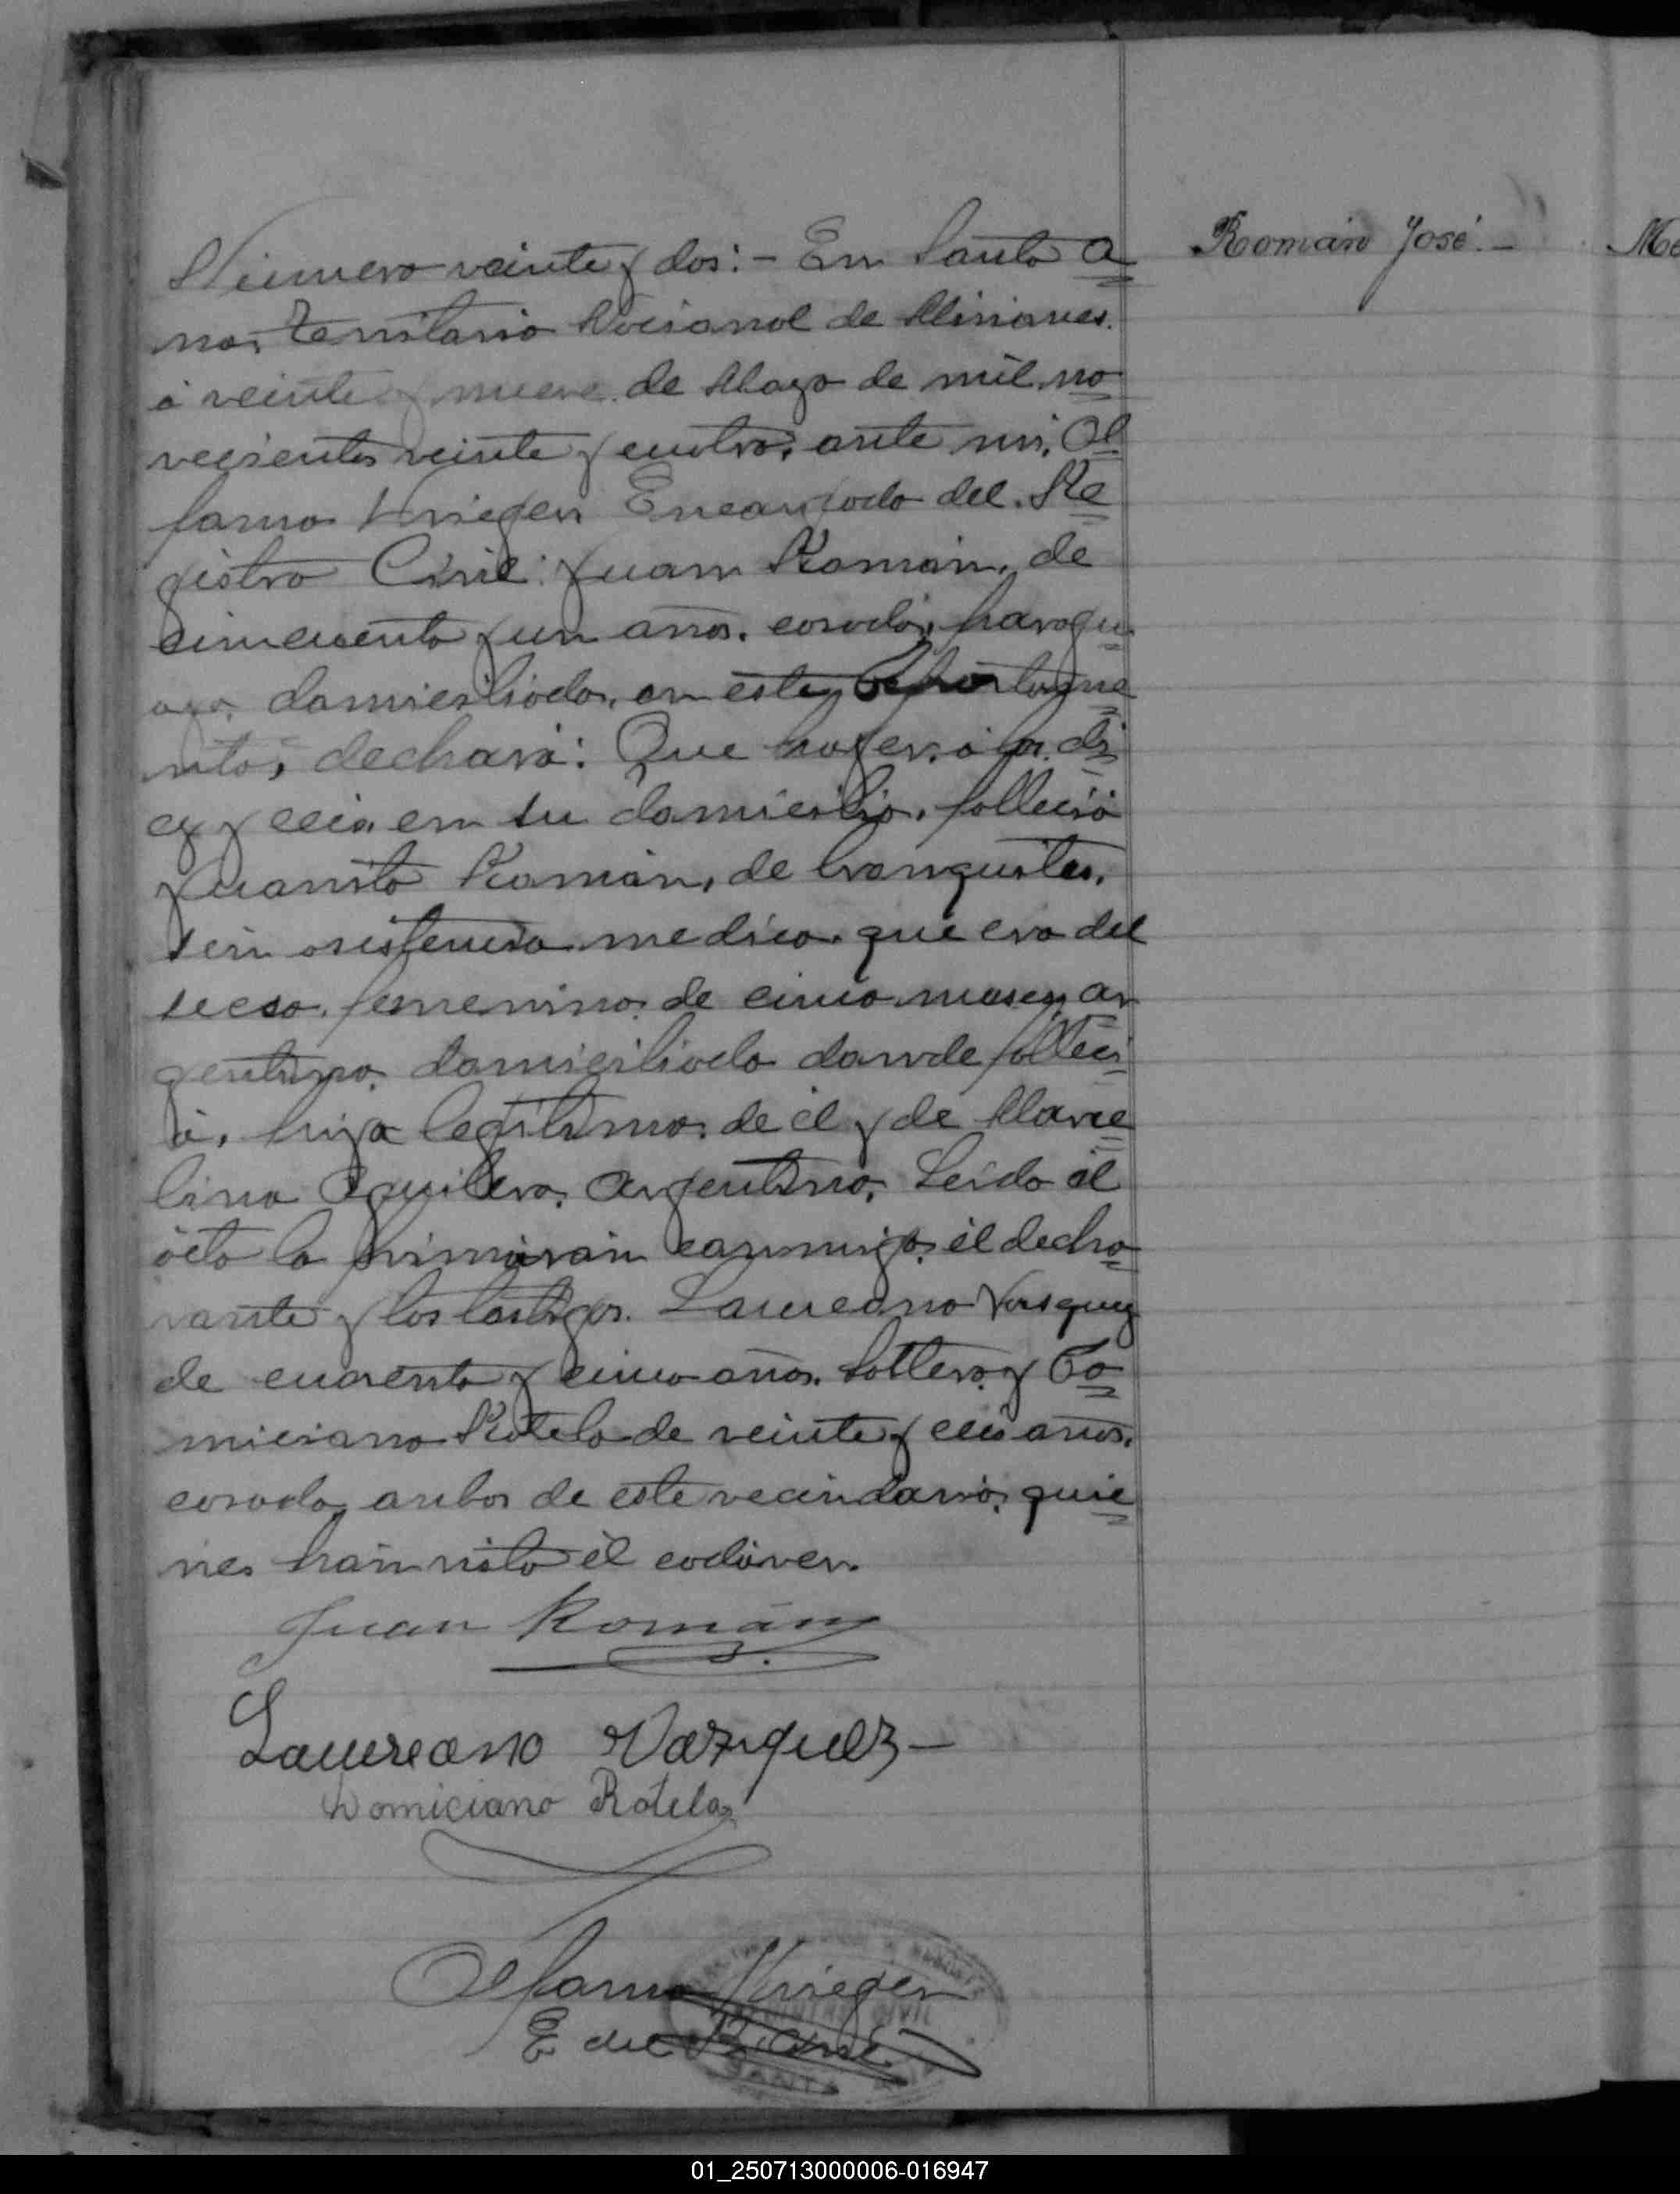 Número veinte y dos:- En Santa A
na, Territorio Nacional de Misiones.
á veinte y nueve de Mayo de mil no
vecientos veinte y cuatro, ante mi, Al
fonso Krieger Encargado del Re
gistro Civil: Juan Román, de
cincuenta y un años, casado, paragu
ayo, domiciliado en este Departame
nto, declaró: Que hoy, á las di
ez y ceis en su domicilio, falleció
Juanita Román, de bronquites,
sin asistencia medica, que era del
secso femenino, de cinco meses, ar
gentina, domiciliada donde falleci
ó, hija legítima de él y de Marce
lina Aguilera, Argentina, Leida él
ácta la firmarán conmigo, él decla
rante y los testigos. Laureano Vasquez
de cuarenta y cinco años, soltero, y Do
miciano Rotela de veinte y ceis años,
casado, anbos de este vecindario, quie
nes hán visto él cadáver.
Juan Román
Laureano Vazquez-
Domiciano Rotela
Alfonso Krieger
E del R. Civil
REGISTRO CIVIL
SANTA ANA
Román José.-
01_250713000006-016947